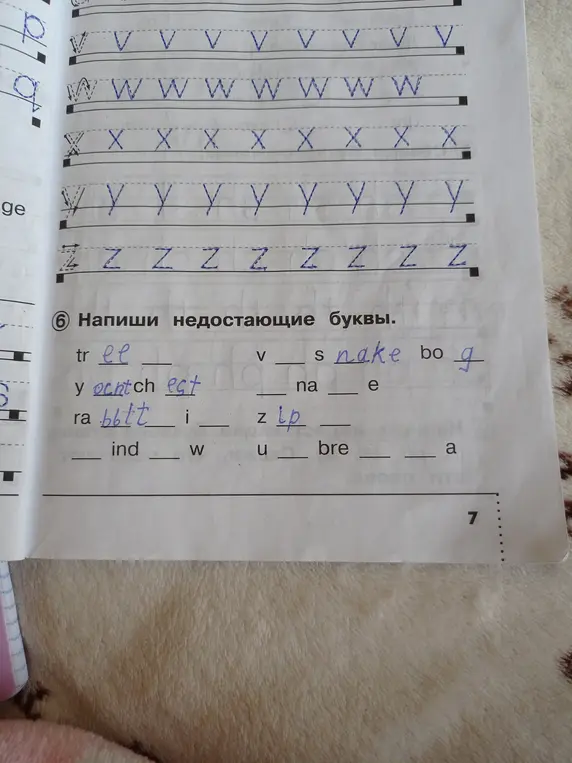 p
v v v v v v v v v
w w w w w w w w
q
x x x x x x x x x
ge
y y y y y y y y y
z z z z z z z z z
6 Напиши недостающие буквы.
tr ee __ v __ s nake bo g
y ch est __ na __ e
ra bbit i __ z ip __
__ ind __ w u __ bre __ __ a
7